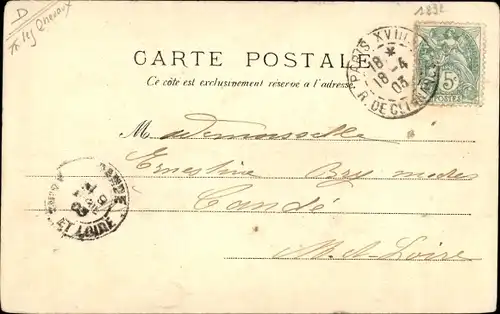 D
1892
CARTE POSTALE
Ce côté est exclusivement réservé à l'adresse
PARIS XVIII
18 - 4
03
R. DE CLIGNANC
5c
POSTES
Mademoiselle
Ernestine Bry modes
Candé
M. et Loire
CANDÉ
19
03
ET LOIRE